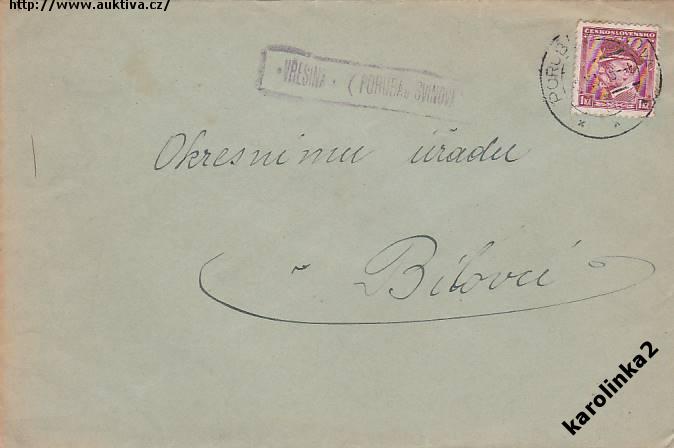 http://www.auktiva.cz/
VŘESINA · (PORUBA u SVINOVA
ČESKOSLOVENSKO
1Kč 1Kč
PORUB
Okresnímu úřadu
v Bílovci
karolinka2